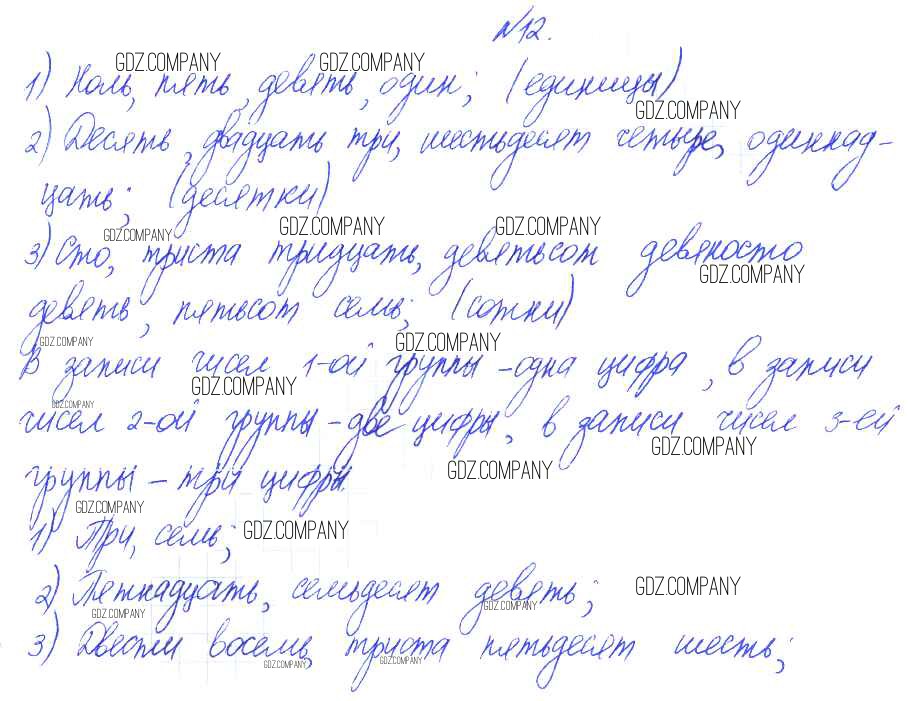 №12.
GDZ.COMPANY GDZ.COMPANY
1) Ноль, пять, девять, один; (единицы)
GDZ.COMPANY
2) Десять, двадцать три, шестьдесят четыре, одиннад-
цать; (десятки)
GDZ.COMPANY GDZ.COMPANY GDZ.COMPANY
3) Сто, триста тридцать, девятьсот девяносто
GDZ.COMPANY
девять, пятьсот семь; (сотни)
GDZ.COMPANY GDZ.COMPANY
В записи чисел 1-ой группы - одна цифра, в записи
GDZ.COMPANY
GDZ.COMPANY
чисел 2-ой группы - две цифры, в записи чисел 3-ей
GDZ.COMPANY
группы - три цифры.
GDZ.COMPANY
GDZ.COMPANY
1) Три, семь;
GDZ.COMPANY
2) Пятнадцать, семьдесят девять;
GDZ.COMPANY
GDZ.COMPANY GDZ.COMPANY
3) Двести восемь, триста пятьдесят шесть;
GDZ.COMPANY GDZ.COMPANY